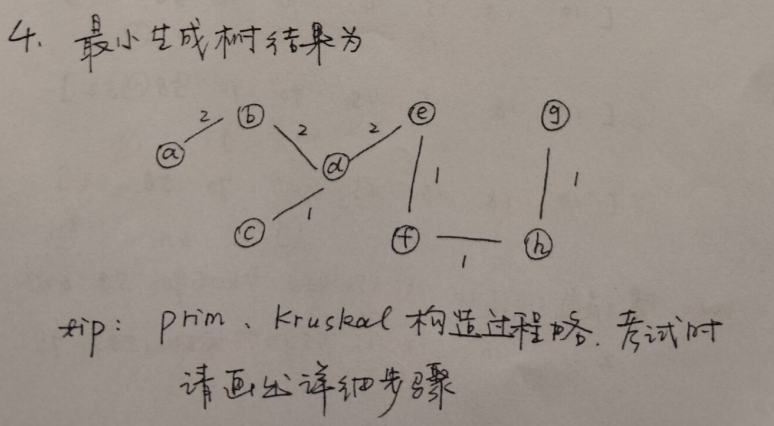 4. 最小生成树结果为
2 b e g
a 2 2
d 1 1
c 1 f h
1
tip: prim、Kruskal 构造过程略. 考试时
请画出详细步骤